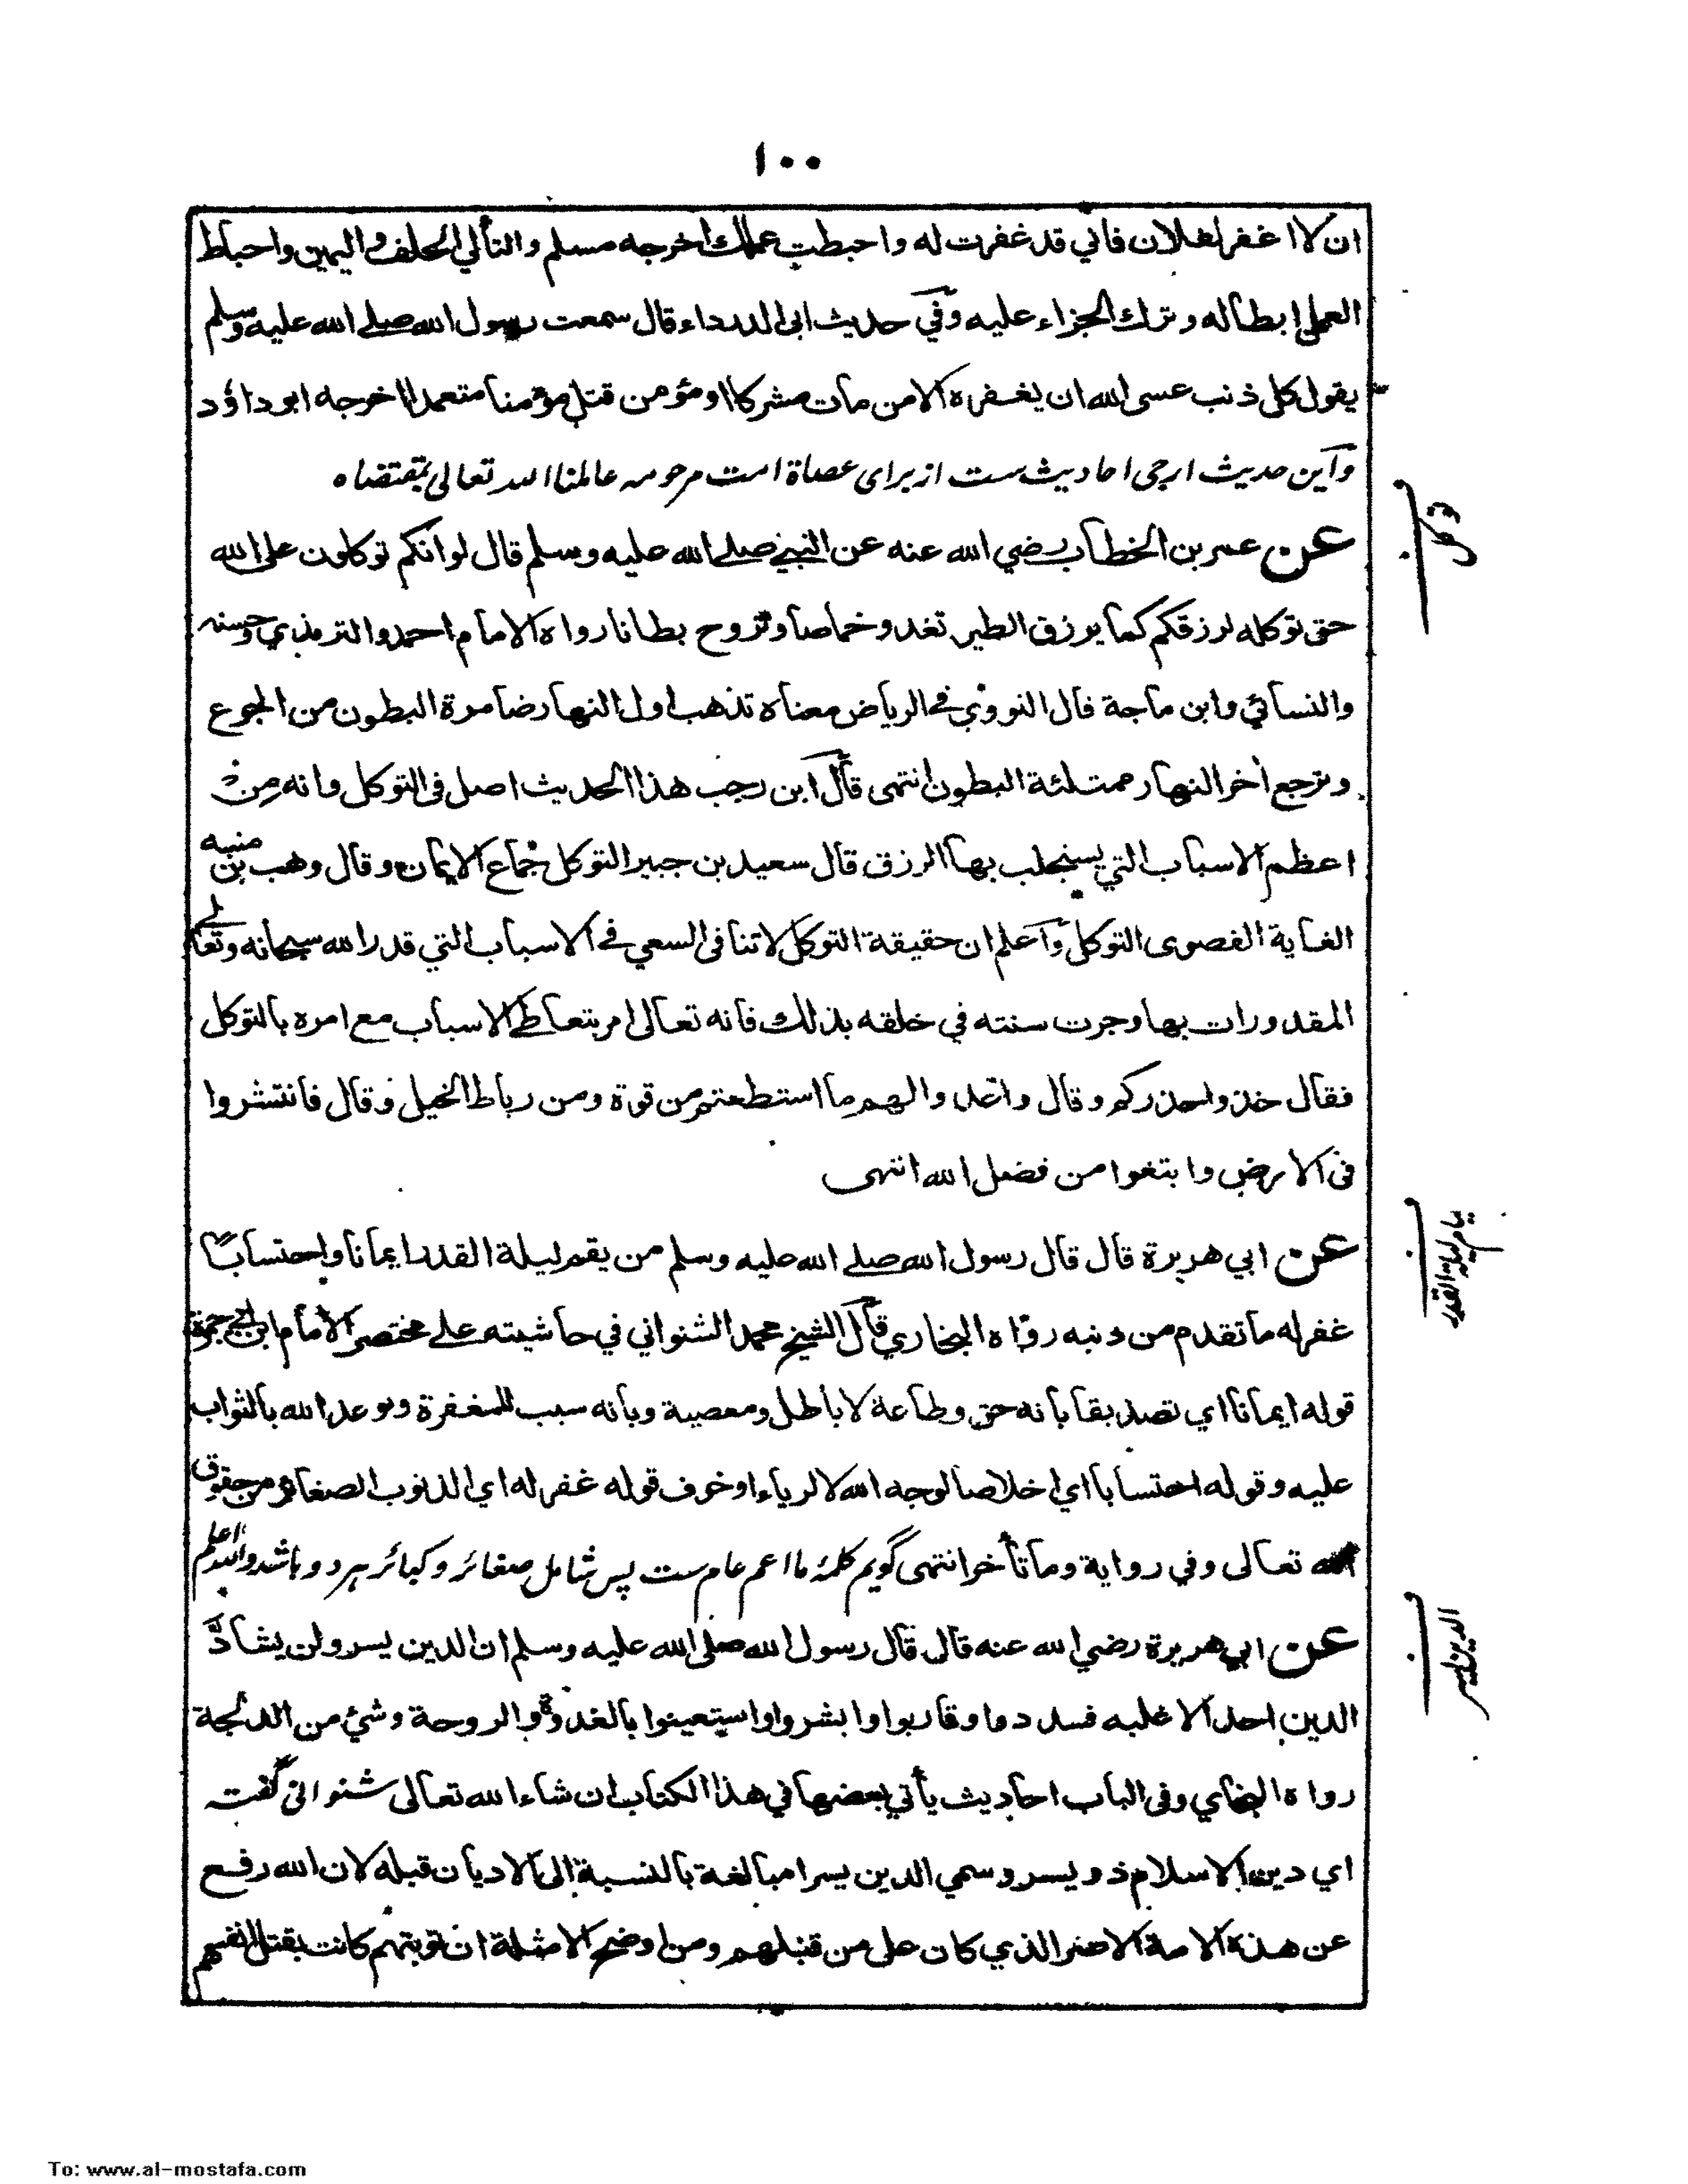 ١٠٠
ان لا اغفر لفلان فاني قد غفرت له واحبطت عملك اخرجه مسلم والتألي الحلف واليمين واحباط
العمل ابطاله وترك الجزاء عليه وفي حديث ابى الدرداء قال سمعت رسول الله صلے الله عليه وسلم
يقول كل ذنب عسى الله ان يغفره الا من مات مشركا او مؤمن قتل مؤمنا متعمدا اخرجه ابو داؤد
واين حديث ارجى احاديث ست از براى عصاة امت مرحومه عاملنا الله تعالى بمقتضاه
عن عمر بن الخطاب رضي الله عنه عن النبي صلے الله عليه وسلم قال لو انكم توكلون على الله
حق توكله لرزقكم كما يرزق الطير تغدو خماصا وتروح بطانا رواه الامام احمد والترمذي وحسنه
والنسائي وابن ماجة قال النووي في الرياض معناه تذهب اول النهار ضامرة البطون من الجوع
وترجع أخر النهار ممتلئة البطون انتهى قال ابن رجب هذا الحديث اصل فى التوكل وانه من
اعظم الاسباب التي يستجلب بها الرزق قال سعيد بن جبير التوكل جماع الايمان وقال وهب بن منبه
الغاية القصوى التوكل واعلم ان حقيقة التوكل لا تنافى السعي في الاسباب التي قدر الله سبحانه وتعالے
المقدورات بها وجرت سنته في خلقه بذلك فانه تعالى امر بتعاطى الاسباب مع امره بالتوكل
فقال خذوا حذركم وقال واعدوا لهم ما استطعتم من قوة ومن رباط الخيل وقال فانتشروا
فى الارض وابتغوا من فضل الله انتهى
عن ابي هريرة قال قال رسول الله صلے الله عليه وسلم من يقم ليلة القدر ايمانا واحتسابًا
غفر له ما تقدم من ذنبه رواه البخاري قال الشيخ محمد الشنواني في حاشيته علے مختصر الامام ابن ابي جمرة
قوله ايمانا اي تصديقا بانه حق وطاعة لا باطل ومعصية وبانه سبب للمغفرة وبوعد الله بالثواب
عليه وقوله احتسابا اي اخلاصا لوجه الله لا لرياء او خوف قوله غفر له اي الذنوب الصغائر من حقوق
الله تعالى وفي رواية وما تأخر انتهى گويم كلمۀ ما اعم عام ست پس شامل صغائر وكبائر هر دو باشد والله اعلم
عن ابي هريرة رضي الله عنه قال قال رسول الله صلى الله عليه وسلم ان الدين يسر ولن يشادَّ
الدين احد الا غلبه فسددوا وقاربوا وابشروا واستعينوا بالغدوة والروحة وشئ من الدلجة
رواه البخاري وفى الباب احاديث يأتي بعضها في هذا الكتاب ان شاء الله تعالى شنوانى گفته
اي دين الاسلام ذو يسر وسمي الدين يسرا مبالغة بالنسبة الى الاديان قبله لان الله رفع
عن هذه الامة الاصر الذي كان على من قبلهم ومن اوضح الامثلة ان توبتهم كانت بقتل انفسهم
توكل
قيام ليلة القدر
الدين يسر
To: www.al-mostafa.com